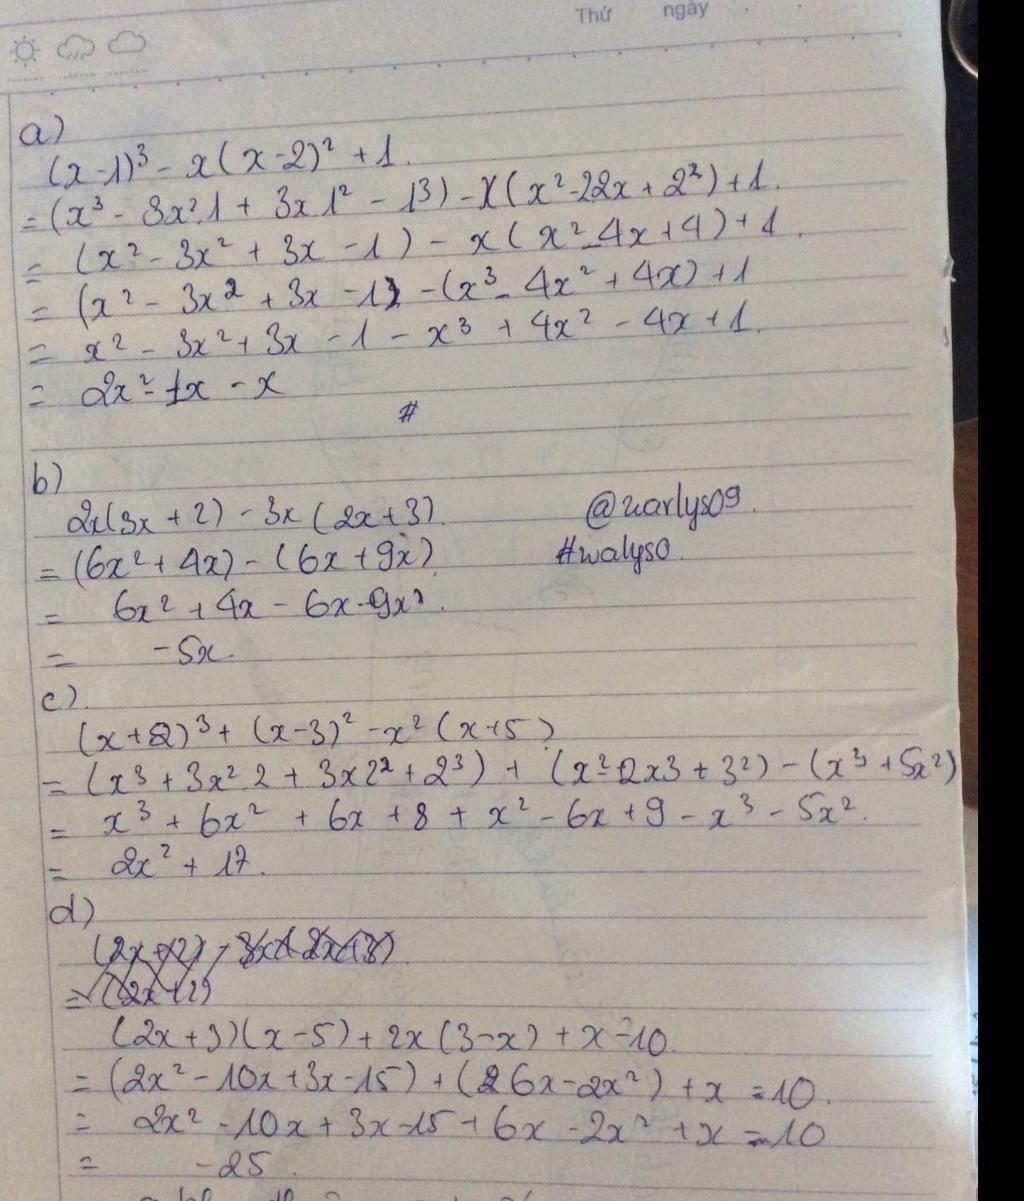 Thứ ngày
a)
(x-1)³ - x(x-2)² + 1.
= (x³ - 3x².1 + 3x1² - 1³) - x(x²-22x + 2²) + 1.
= (x² - 3x² + 3x - 1) - x(x²-4x+4) + 1.
= (x² - 3x² + 3x - 1) - (x³- 4x² + 4x) + 1
= x² - 3x² + 3x - 1 - x³ + 4x² - 4x + 1.
= 2x² - 1x - x
#
b)
2x(3x + 2) - 3x(2x+3). @warlys09.
= (6x² + 4x) - (6x + 9x). #walyso.
= 6x² + 4x - 6x - 9x².
= -5x.
c).
(x+2)³ + (x-3)² - x²(x+5)
= (x³ + 3x².2 + 3x2² + 2³) + (x²-2x3 + 3²) - (x³ + 5x²)
= x³ + 6x² + 6x + 8 + x² - 6x + 9 - x³ - 5x².
= 2x² + 17.
d)
= (2x+2)
(2x+3)(x-5) + 2x(3-x) + x - 10.
= (2x² - 10x + 3x - 15) + (6x - 2x²) + x - 10.
= 2x² - 10x + 3x - 15 + 6x - 2x² + x - 10
= -25.